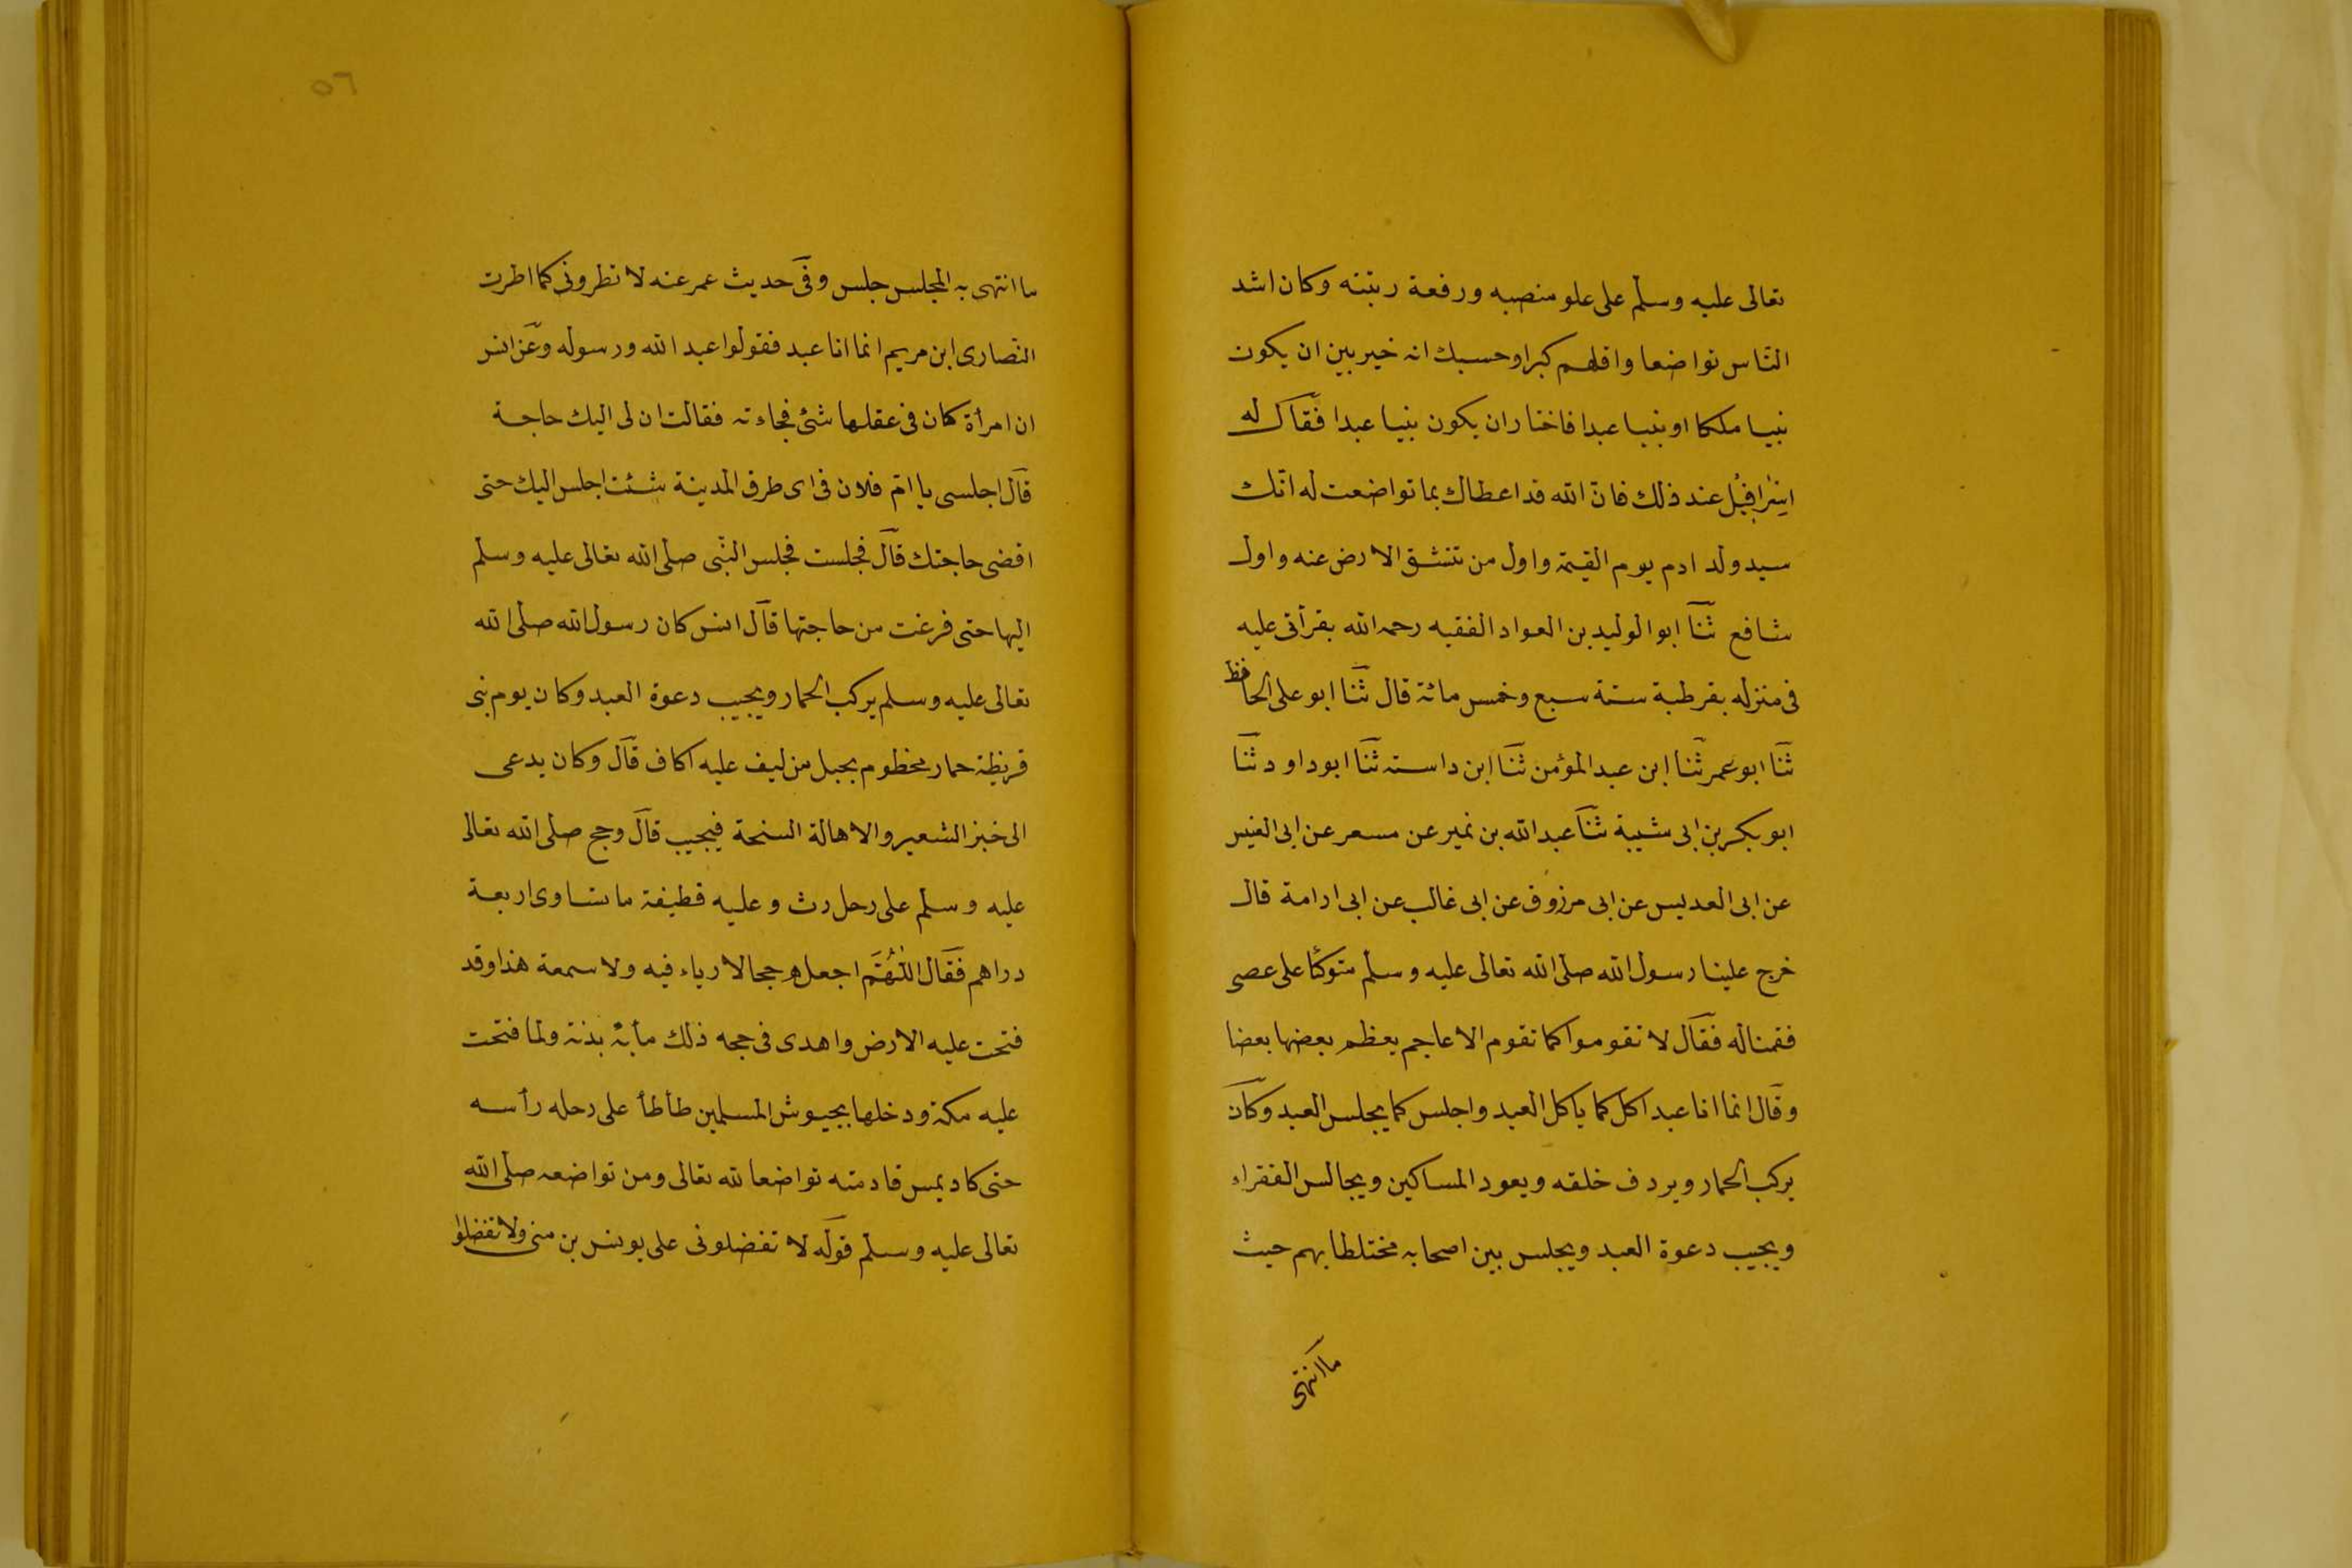 تعالى عليه وسلم على علو منصبه ورفعة رتبته وكان اشد
الناس تواضعا واقلهم كبرا وحسبك انه خير بين ان يكون
نبيا ملكا او نبيا عبدا فاختار ان يكون نبيا عبدا فقال له
اسرافيل عند ذلك فان الله قد اعطاك بما تواضعت له انك
سيد ولد ادم يوم القيمة واول من تنشق الارض عنه واول
شافع ثنا ابو الوليد بن العواد الفقيه رحمه الله بقرأتى عليه
فى منزله بقرطبة سنة سبع وخمس مائة قال ثنا ابو على الحافظ
ثنا ابو عمر ثنا ابن عبد المؤمن ثنا ابن داسته ثنا ابو داود ثنا
ابو بكر بن ابى شيبة ثنا عبد الله بن نمير عن مسعر عن ابى العنبر
عن ابى العدبس عن ابى مرزوق عن ابى غالب عن ابى ادامة قال
خرج علينا رسول الله صلى الله تعالى عليه وسلم متوكئا على عصى
فقمنا له فقال لا تقوموا كما تقوم الاعاجم يعظم بعضها بعضا
وقال انما انا عبد اكل كما ياكل العبد واجلس كما يجلس العبد وكان
يركب الحمار ويردف خلفه ويعود المساكين ويجالس الفقراء
ويجيب دعوة العبد ويجلس بين اصحابه مختلطا بهم حيث
ما انتهى
٥٦
ما انتهى به المجلس جلس وفى حديث عمر عنه لا تطرونى كما اطرت
النصارى ابن مريم انما انا عبد فقولوا عبد الله ورسوله وعن انس
ان امرأة كان فى عقلها شئ فجاءته فقالت ان لى اليك حاجة
قال اجلسى يا ام فلان فى اى طرق المدينة شئت اجلس اليك حتى
اقضى حاجتك قال فجلست فجلس النبى صلى الله تعالى عليه وسلم
اليها حتى فرغت من حاجتها قال انس كان رسول الله صلى الله
تعالى عليه وسلم يركب الحمار ويجيب دعوة العبد وكان يوم بنى
قريظة حمار مخطوم بحبل من ليف عليه اكاف قال وكان يدعى
الى خبز الشعير والاهالة السنحة فيجيب قال وحج صلى الله تعالى
عليه وسلم على رحل رث وعليه قطيفة ما تساوى اربعة
دراهم فقال اللهم اجعله حجا لا رياء فيه ولا سمعة هذا وقد
فتحت عليه الارض واهدى فى حجه ذلك مأية بدنة ولما فتحت
عليه مكة ودخلها بجيوش المسلمين طأطأ على رحله رأسه
حتى كاد يمس قادمته تواضعا لله تعالى ومن تواضعه صلى الله
تعالى عليه وسلم قوله لا تفضلونى على يونس بن متى ولا تفضلوا